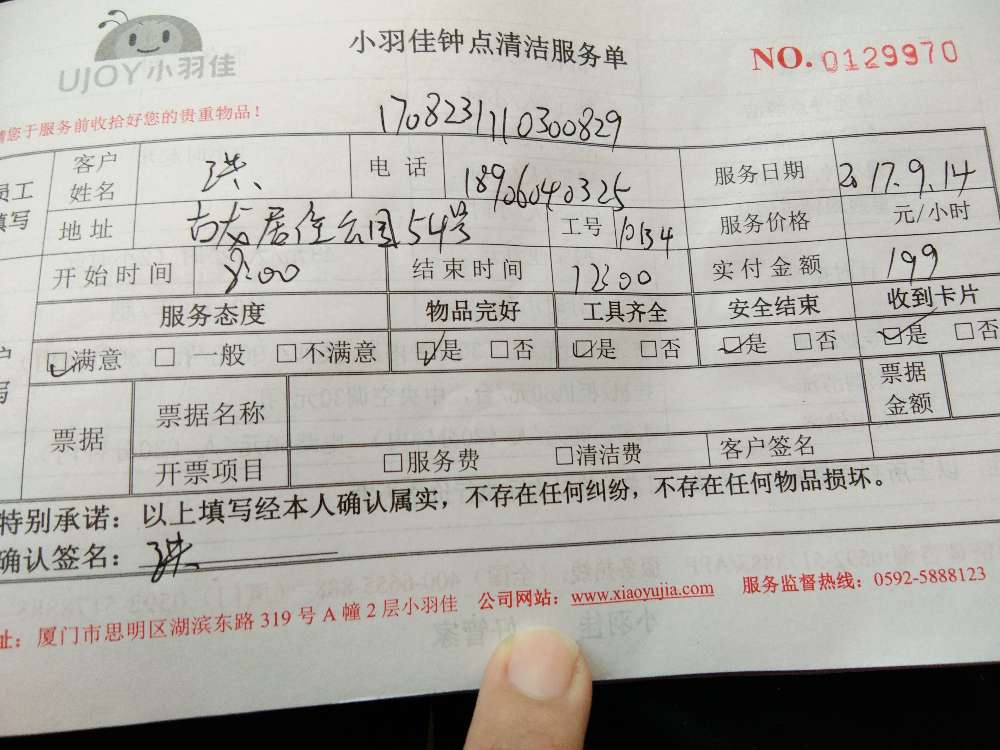 UJOY小羽佳
小羽佳钟点清洁服务单
NO. 0129970
请您于服务前收拾好您的贵重物品！
1708231110300829
员工填写
客户姓名 洪 电话 18906040325 服务日期 2017.9.14
地址 古龙居住公园54号 工号 10134 服务价格 元/小时
开始时间 8:00 结束时间 12:00 实付金额 199
服务态度 物品完好 工具齐全 安全结束 收到卡片
☑满意 □一般 □不满意 ☑是 □否 ☑是 □否 ☑是 □否 ☑是 □否
票据 票据名称 票据金额
开票项目 □服务费 □清洁费 客户签名
特别承诺：以上填写经本人确认属实，不存在任何纠纷，不存在任何物品损坏。
确认签名：洪
址：厦门市思明区湖滨东路319号A幢2层小羽佳 公司网站：www.xiaoyujia.com 服务监督热线：0592-5888123